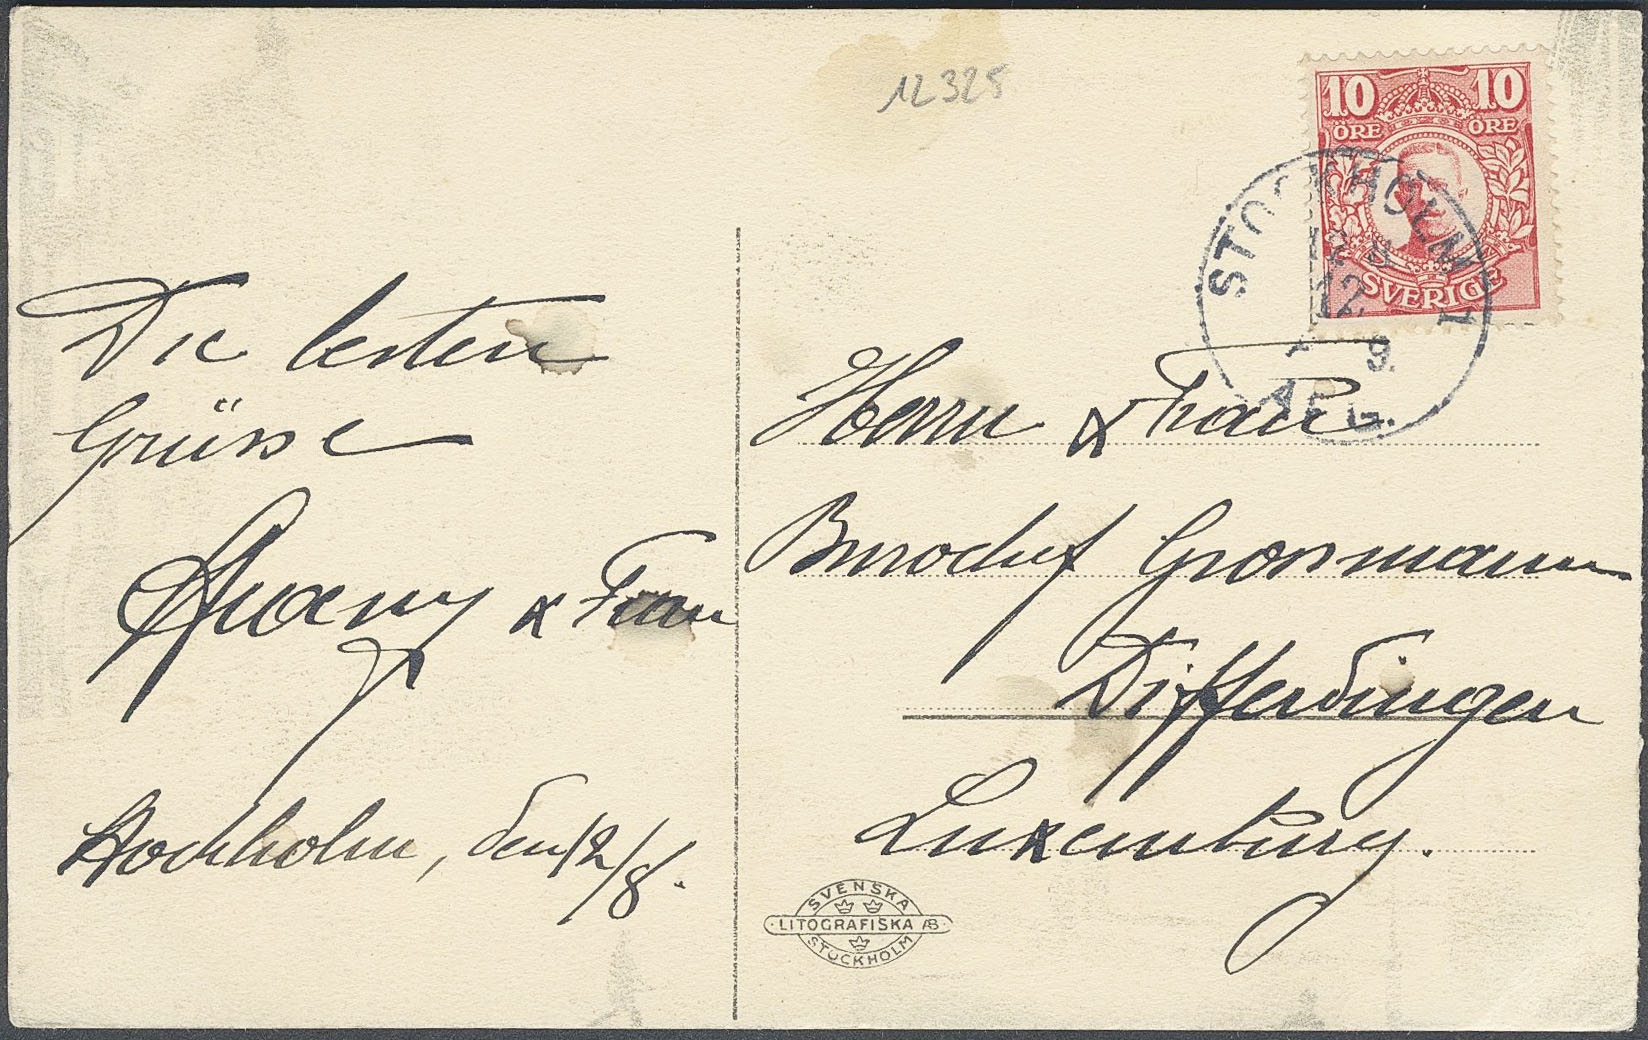 12325
10 10
ÖRE ÖRE
SVERIGE
STOCKHOLM 1
12 8
12
9.
AFG.
Die besten
Grüsse
& Frau
Stockholm, den 12/8.
Herrn & Frau
Burochef Grossmann
Differdingen
Luxemburg.
SVENSKA
LITOGRAFISKA AB
STOCKHOLM